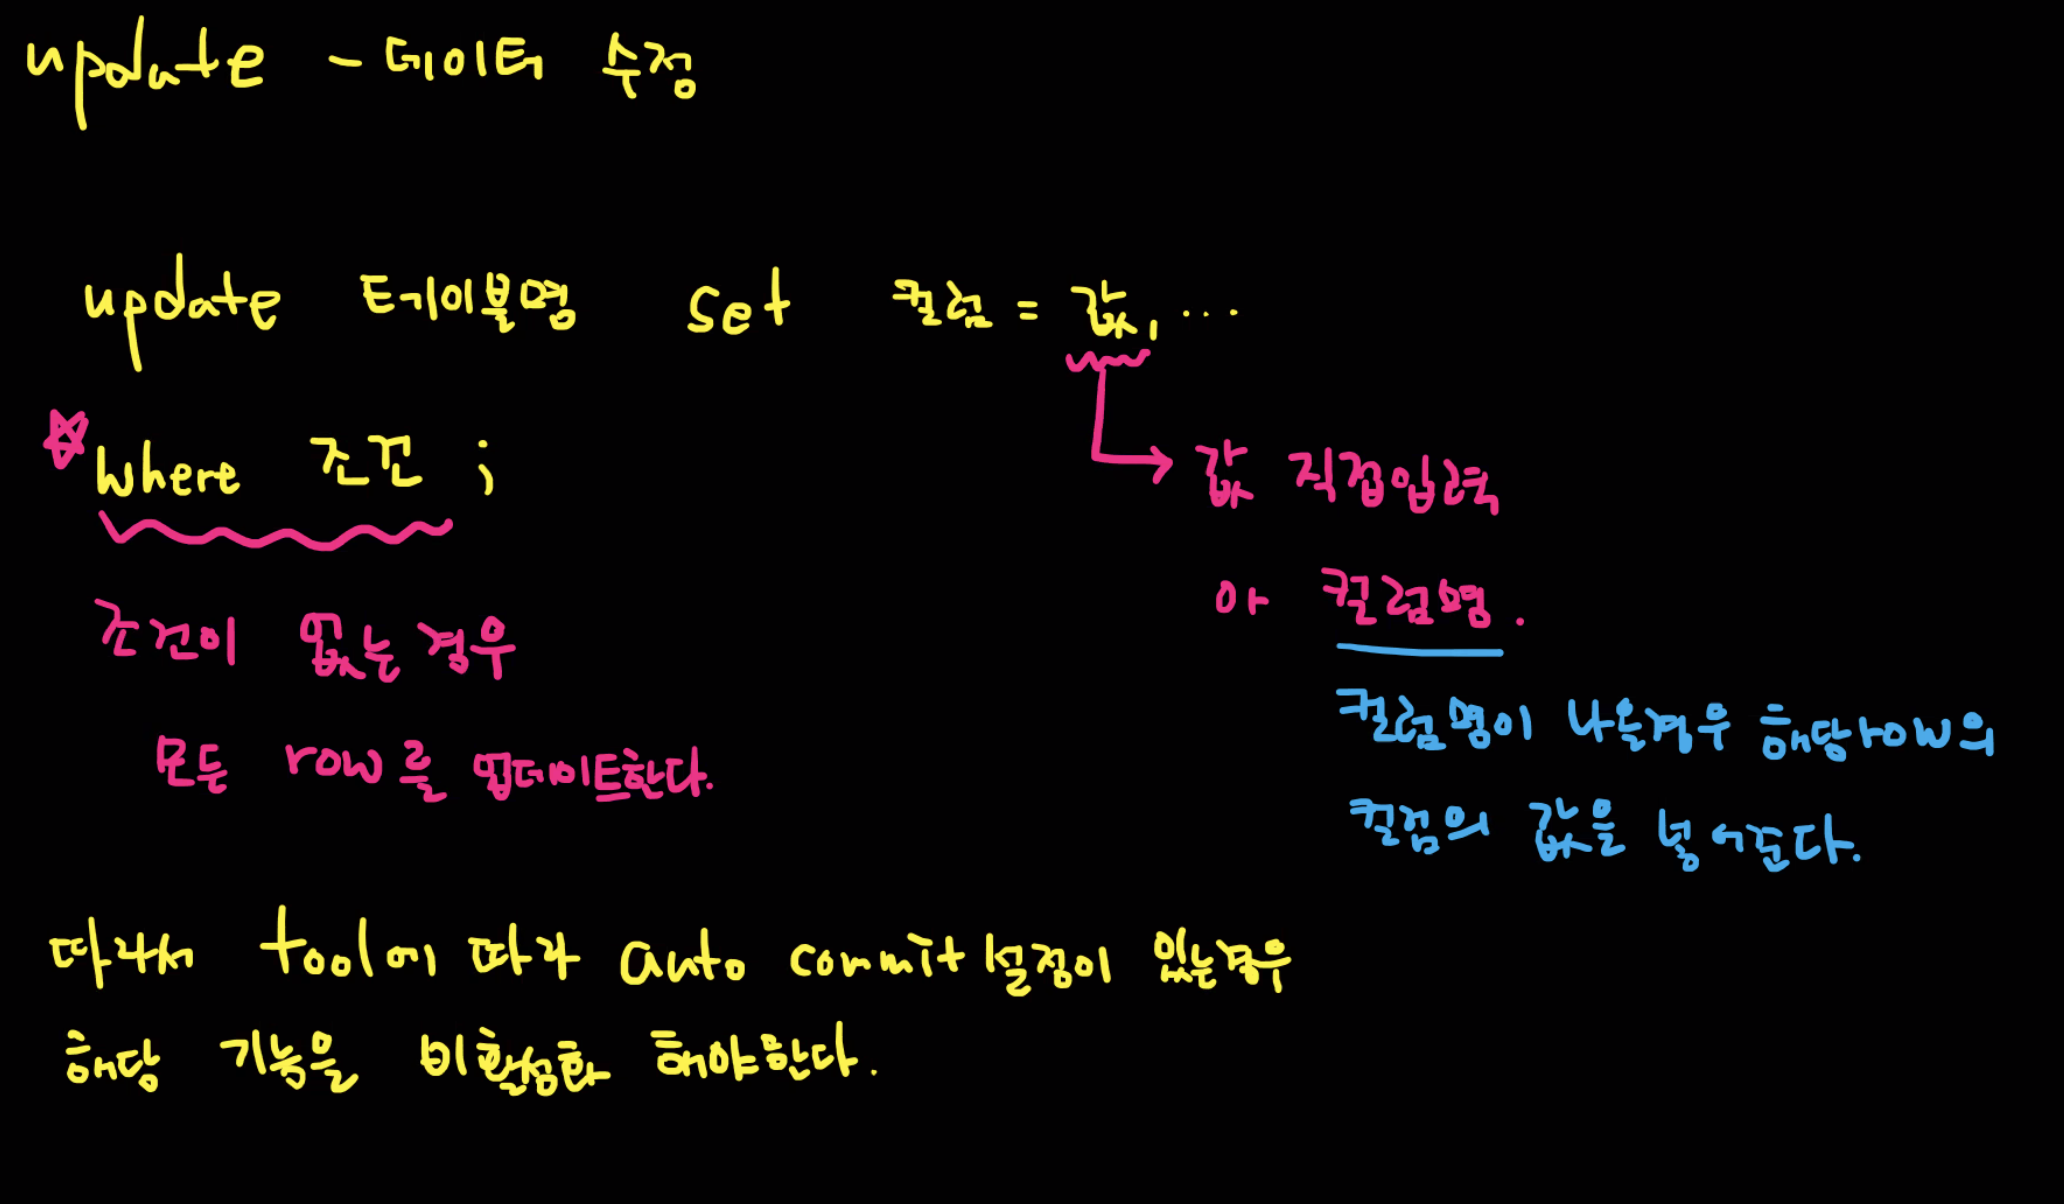 update - 데이터 수정
update 테이블명 set 컬럼 = 값, ...
where 조건 ;
조건이 없는 경우
모든 row를 업데이트한다.
→ 값 직접입력
컬럼명.
컬럼명이 나올경우 해당row의
컬럼의 값을 넣어준다.
따라서 tool에 따라 auto commit 설정이 있는경우
해당 기능을 비활성화 해야한다.